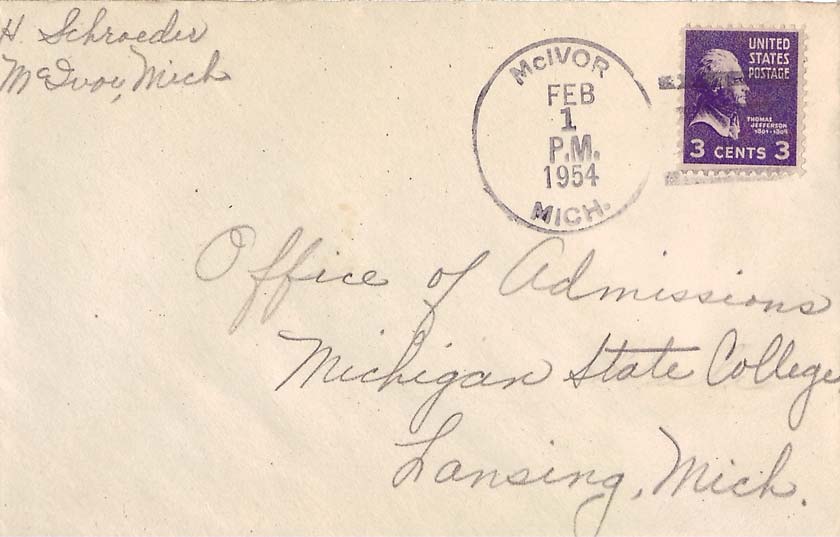 H Schroeder
McIvor, Mich
McIVOR
FEB
1
P.M.
1954
MICH.
UNITED
STATES
POSTAGE
THOMAS
JEFFERSON
1801-1809
3 CENTS 3
Office of Admissions
Michigan State College
Lansing, Mich.